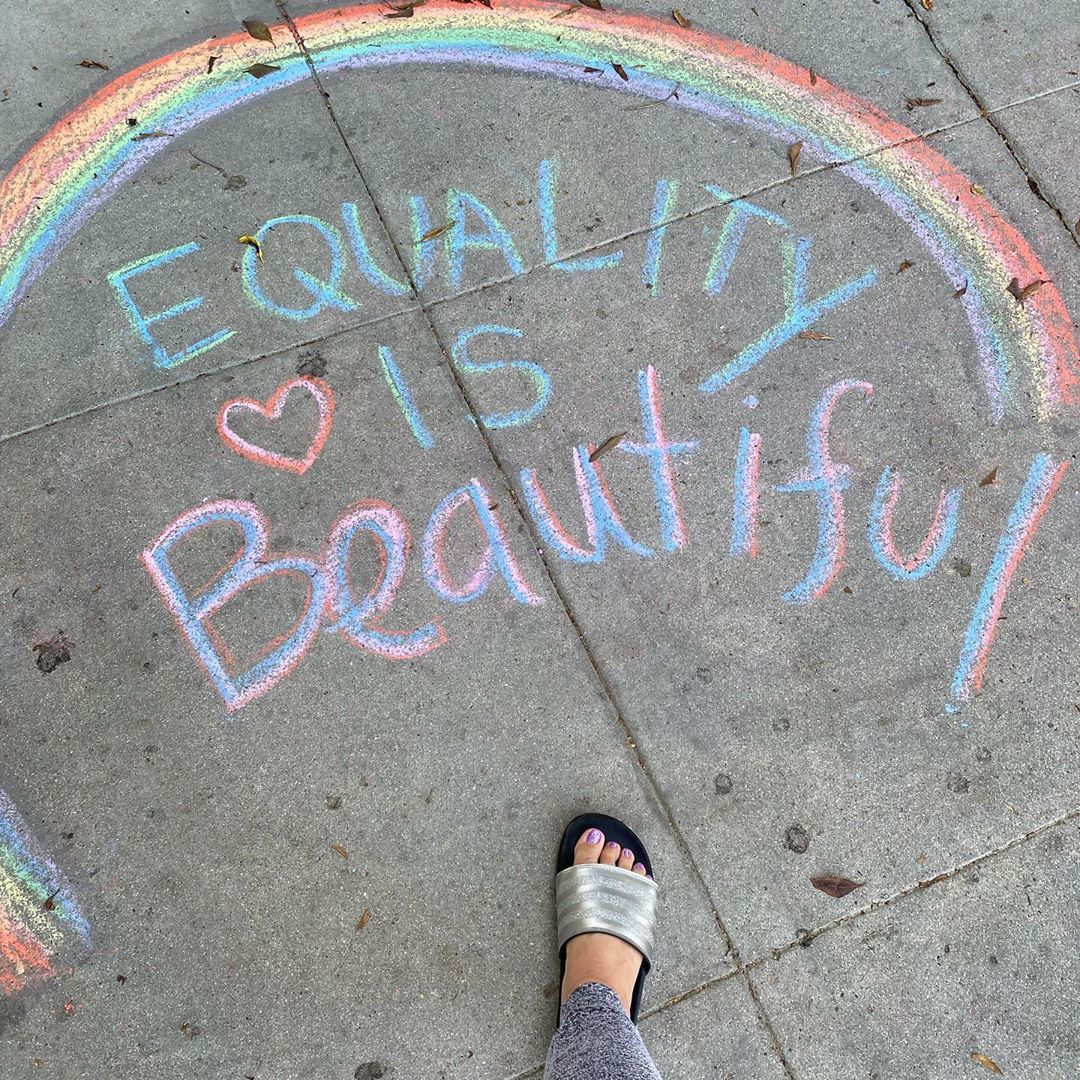 EQUALITY
IS
Beautiful